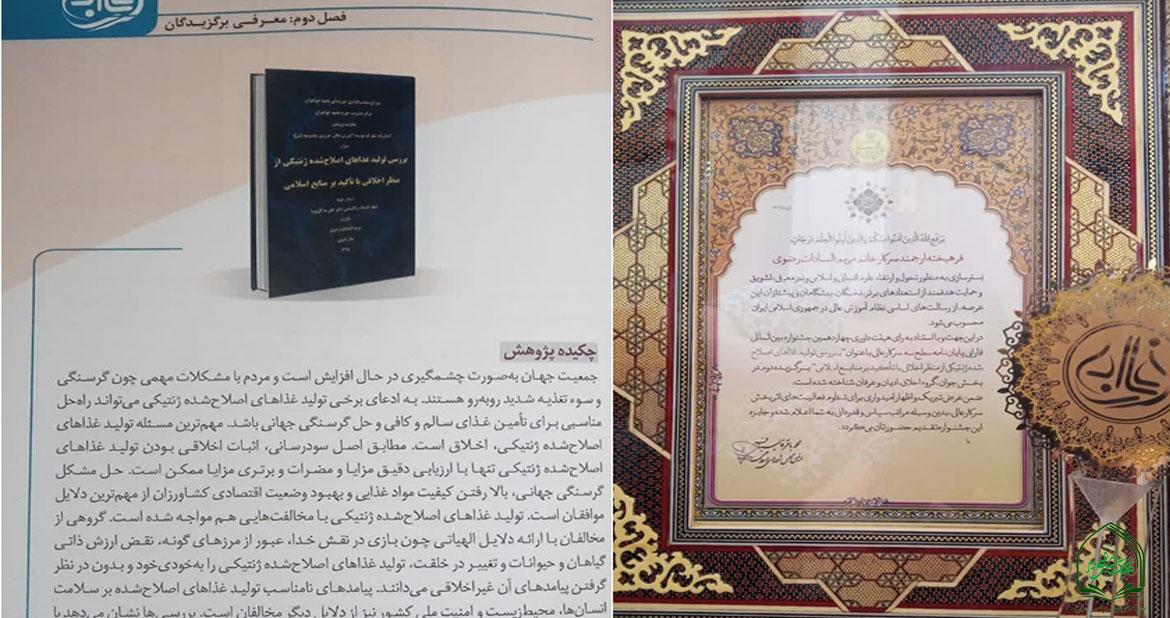 فصل دوم: معرفی برگزیدگان
بررسی تولید غذاهای اصلاح‌شده ژنتیکی از
منظر اخلاقی با تأکید بر منابع اسلامی
چکیده پژوهش
جمعیت جهان به‌صورت چشمگیری در حال افزایش است و مردم با مشکلات مهمی چون گرسنگی
و سوء تغذیه شدید روبه‌رو هستند. به ادعای برخی تولید غذاهای اصلاح‌شده ژنتیکی می‌تواند راه‌حل
مناسبی برای تأمین غذای سالم و کافی و حل گرسنگی جهانی باشد. مهم‌ترین مسئله تولید غذاهای
اصلاح‌شده ژنتیکی، اخلاق است. مطابق اصل سودرسانی، اثبات اخلاقی بودن تولید غذاهای
اصلاح‌شده ژنتیکی تنها با ارزیابی دقیق مزایا و مضرات و برتری مزایا ممکن است. حل مشکل
گرسنگی جهانی، بالا رفتن کیفیت مواد غذایی و بهبود وضعیت اقتصادی کشاورزان از مهم‌ترین دلایل
موافقان است. تولید غذاهای اصلاح‌شده ژنتیکی با مخالفت‌هایی هم مواجه شده است. گروهی از
مخالفان با ارائه دلایل الهیاتی چون بازی در نقش خدا، عبور از مرزهای گونه، نقض ارزش ذاتی
گیاهان و حیوانات و تغییر در خلقت، تولید غذاهای اصلاح‌شده ژنتیکی را به‌خودی‌خود و بدون در نظر
گرفتن پیامدهای آن غیراخلاقی می‌دانند. پیامدهای نامناسب تولید غذاهای اصلاح‌شده بر سلامت
انسان‌ها، محیط‌زیست و امنیت ملی کشور نیز از دلایل دیگر مخالفان است. بررسی‌ها نشان می‌دهد با
یَرفَعِ اللهُ الَّذینَ آمَنوا مِنکُم وَالَّذینَ أوتُوا العِلمَ دَرَجات
فرهیخته ارجمند سرکار خانم مریم السادات رضوی
بسترسازی به منظور تحول و ارتقاء علوم انسانی و اسلامی و نیز معرفی، تشویق
و حمایت هدفمند از استعدادهای برتر، نخبگان، پیشگامان و پیشتازان این
عرصه، از رسالت‌های اساسی نظام آموزش عالی در جمهوری اسلامی ایران
محسوب می‌شود.
در این جهت و با استناد به رای هیئت داوری چهاردهمین جشنواره بین‌المللی
فارابی پایان‌نامه سطح سه سرکار عالی با عنوان "بررسی تولید غذاهای اصلاح
شده ژنتیکی از منظر اخلاقی با تأکید بر منابع اسلامی" برگزیده دوم در
بخش جوان، گروه اخلاق، ادیان و عرفان شناخته شده است.
ضمن عرض تبریک و اظهار امیدواری برای تداوم فعالیت‌های اثربخش
سرکار عالی، بدین وسیله مراتب سپاس و قدردانی به شما اعلام شده و جایزه
این جشنواره تقدیم حضورتان می‌گردد.
فارابی